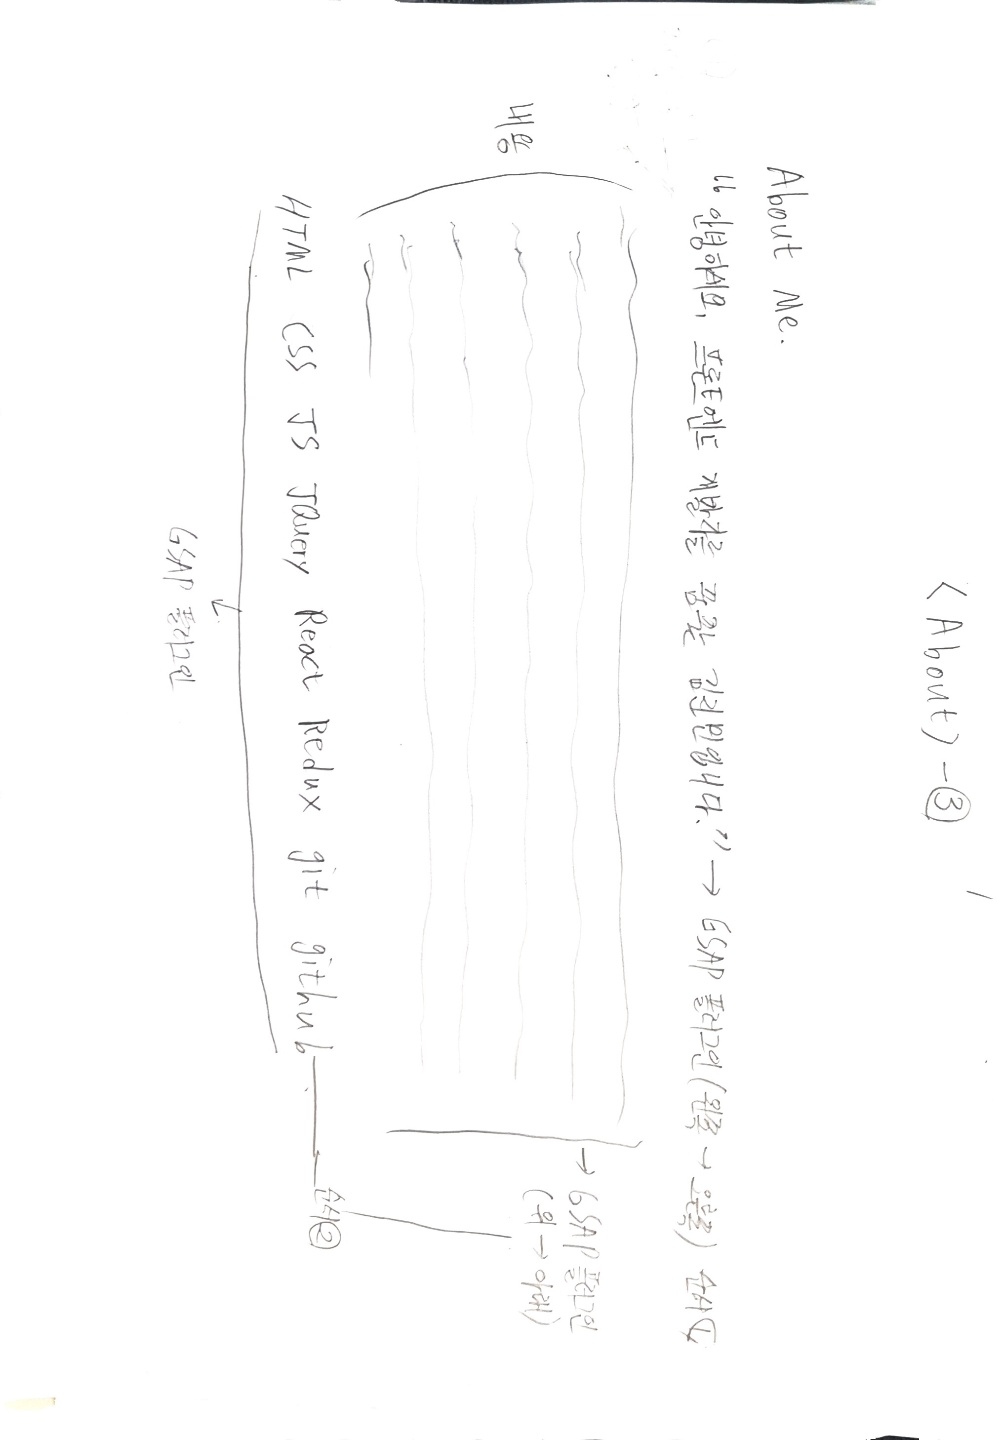 <About> - ③
About Me.
"안녕하세요, 프론트엔드 개발자를 꿈꾸는 입니다." → GSAP 플러그인 (왼쪽 → 오른쪽) 순서 ①
→ GSAP 플러그인
(위 → 아래)
내용
순서②
HTML CSS JS JQuery React Redux git github
GSAP 플러그인